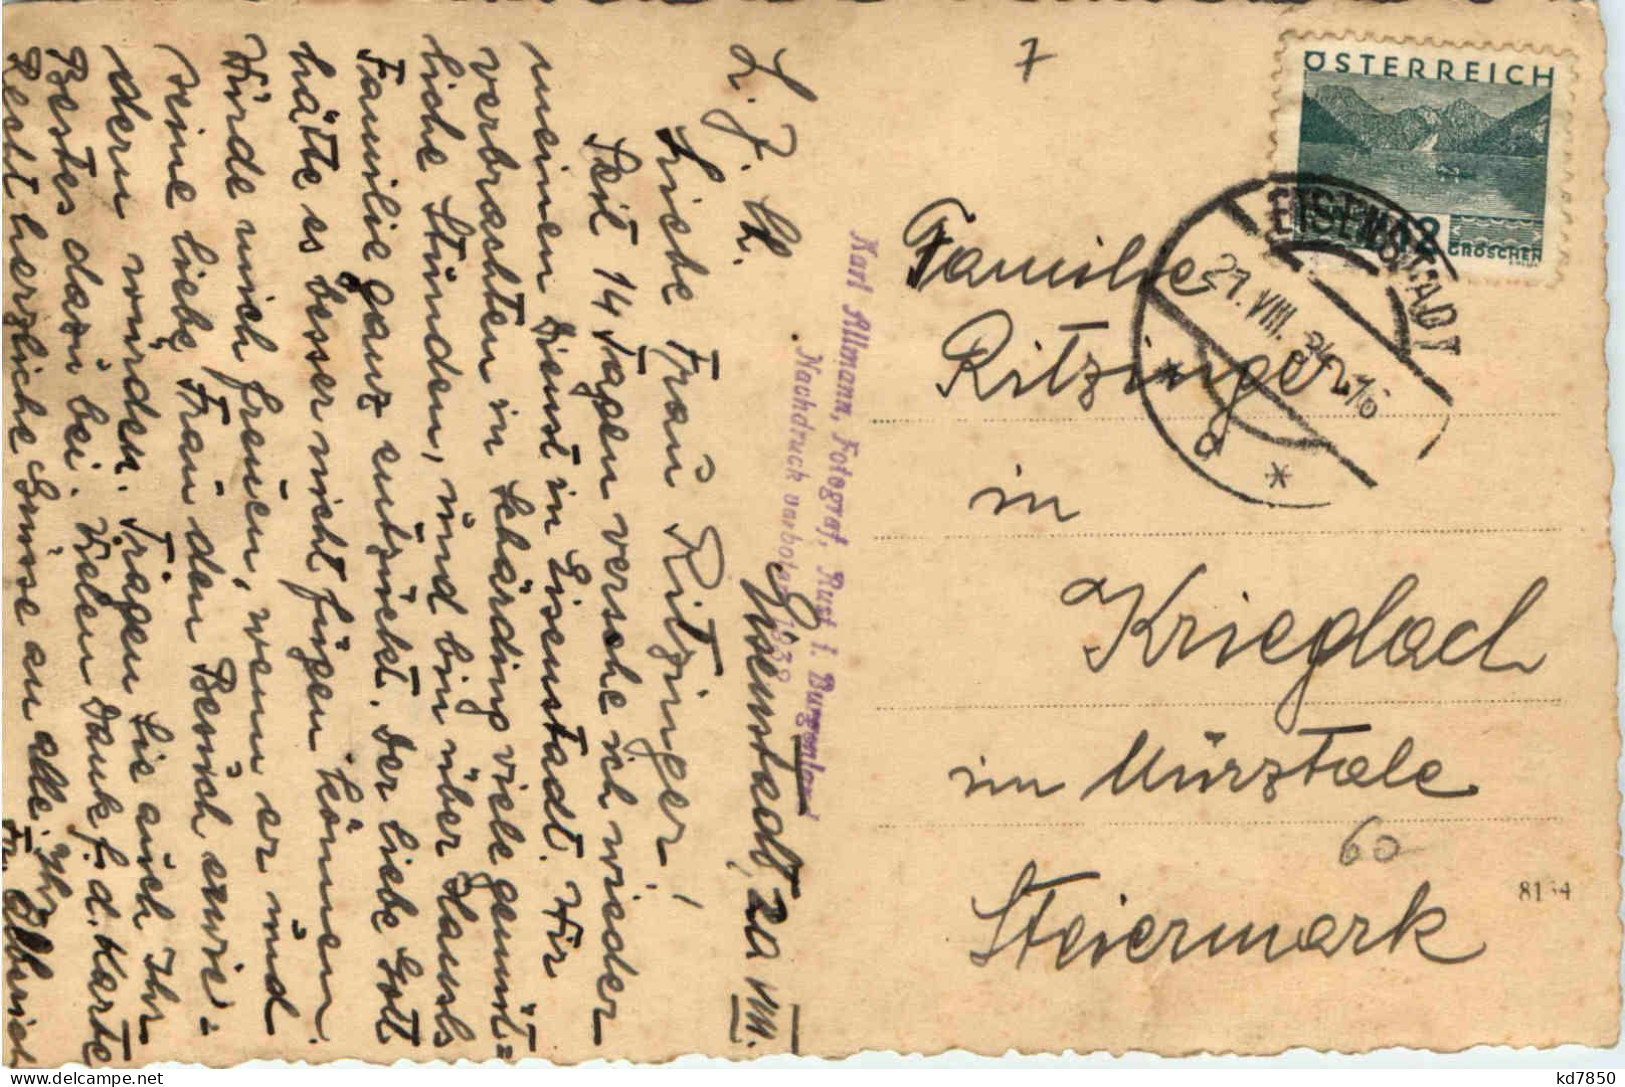 L. J. Ch.
Eisenstadt, 20. VIII.
Liebe Frau Ritzinger!
Seit 14 Tagen versehe ich wieder
meinen Dienst in Eisenstadt. Wir
verbrachten in Schärding viele gemüt=
liche Stunden, und bin über Hansls
Familie ganz entzückt. Der liebe Gott
hätte es besser nicht fügen können.
Würde mich freuen, wenn er und
seine liebe Frau den Besuch erwie=
dern würden. Tragen Sie auch Ihr
Bestes dazu bei. Vielen Dank f. d. Karte
Recht herzliche Grüsse an alle. Ihr
Karl Allmann, Fotograf, Rust i. Burgenland
Nachdruck verboten 1933
7
ÖSTERREICH
12
GROSCHEN
EISENSTADT
21. VIII.
a
Familie
Ritzinger
in
Krieglach
im Mürztale
60
Steiermark
kd7850